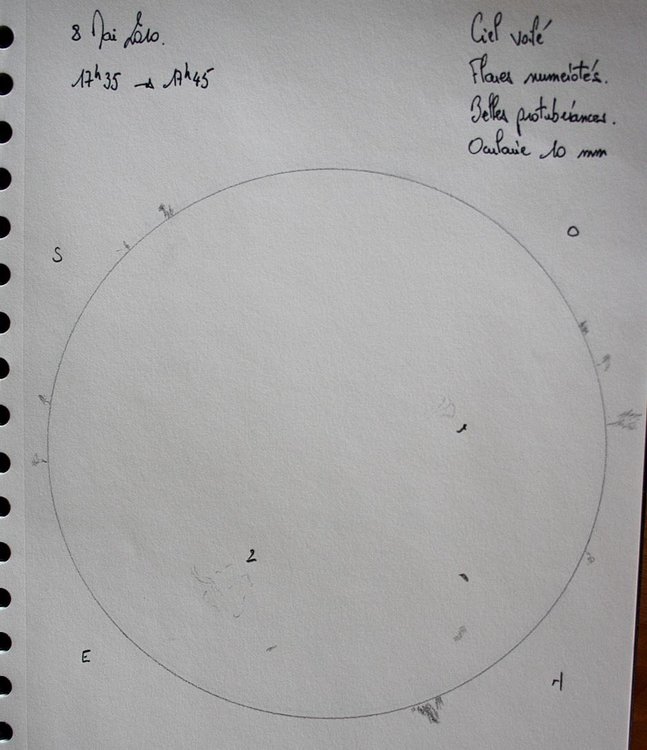 8 Mai 2010.
17h35 → 17h45
Ciel voilé
Flares numérotés.
Belles protubérances.
Oculaire 10 mm
O
S
1
2
E
N